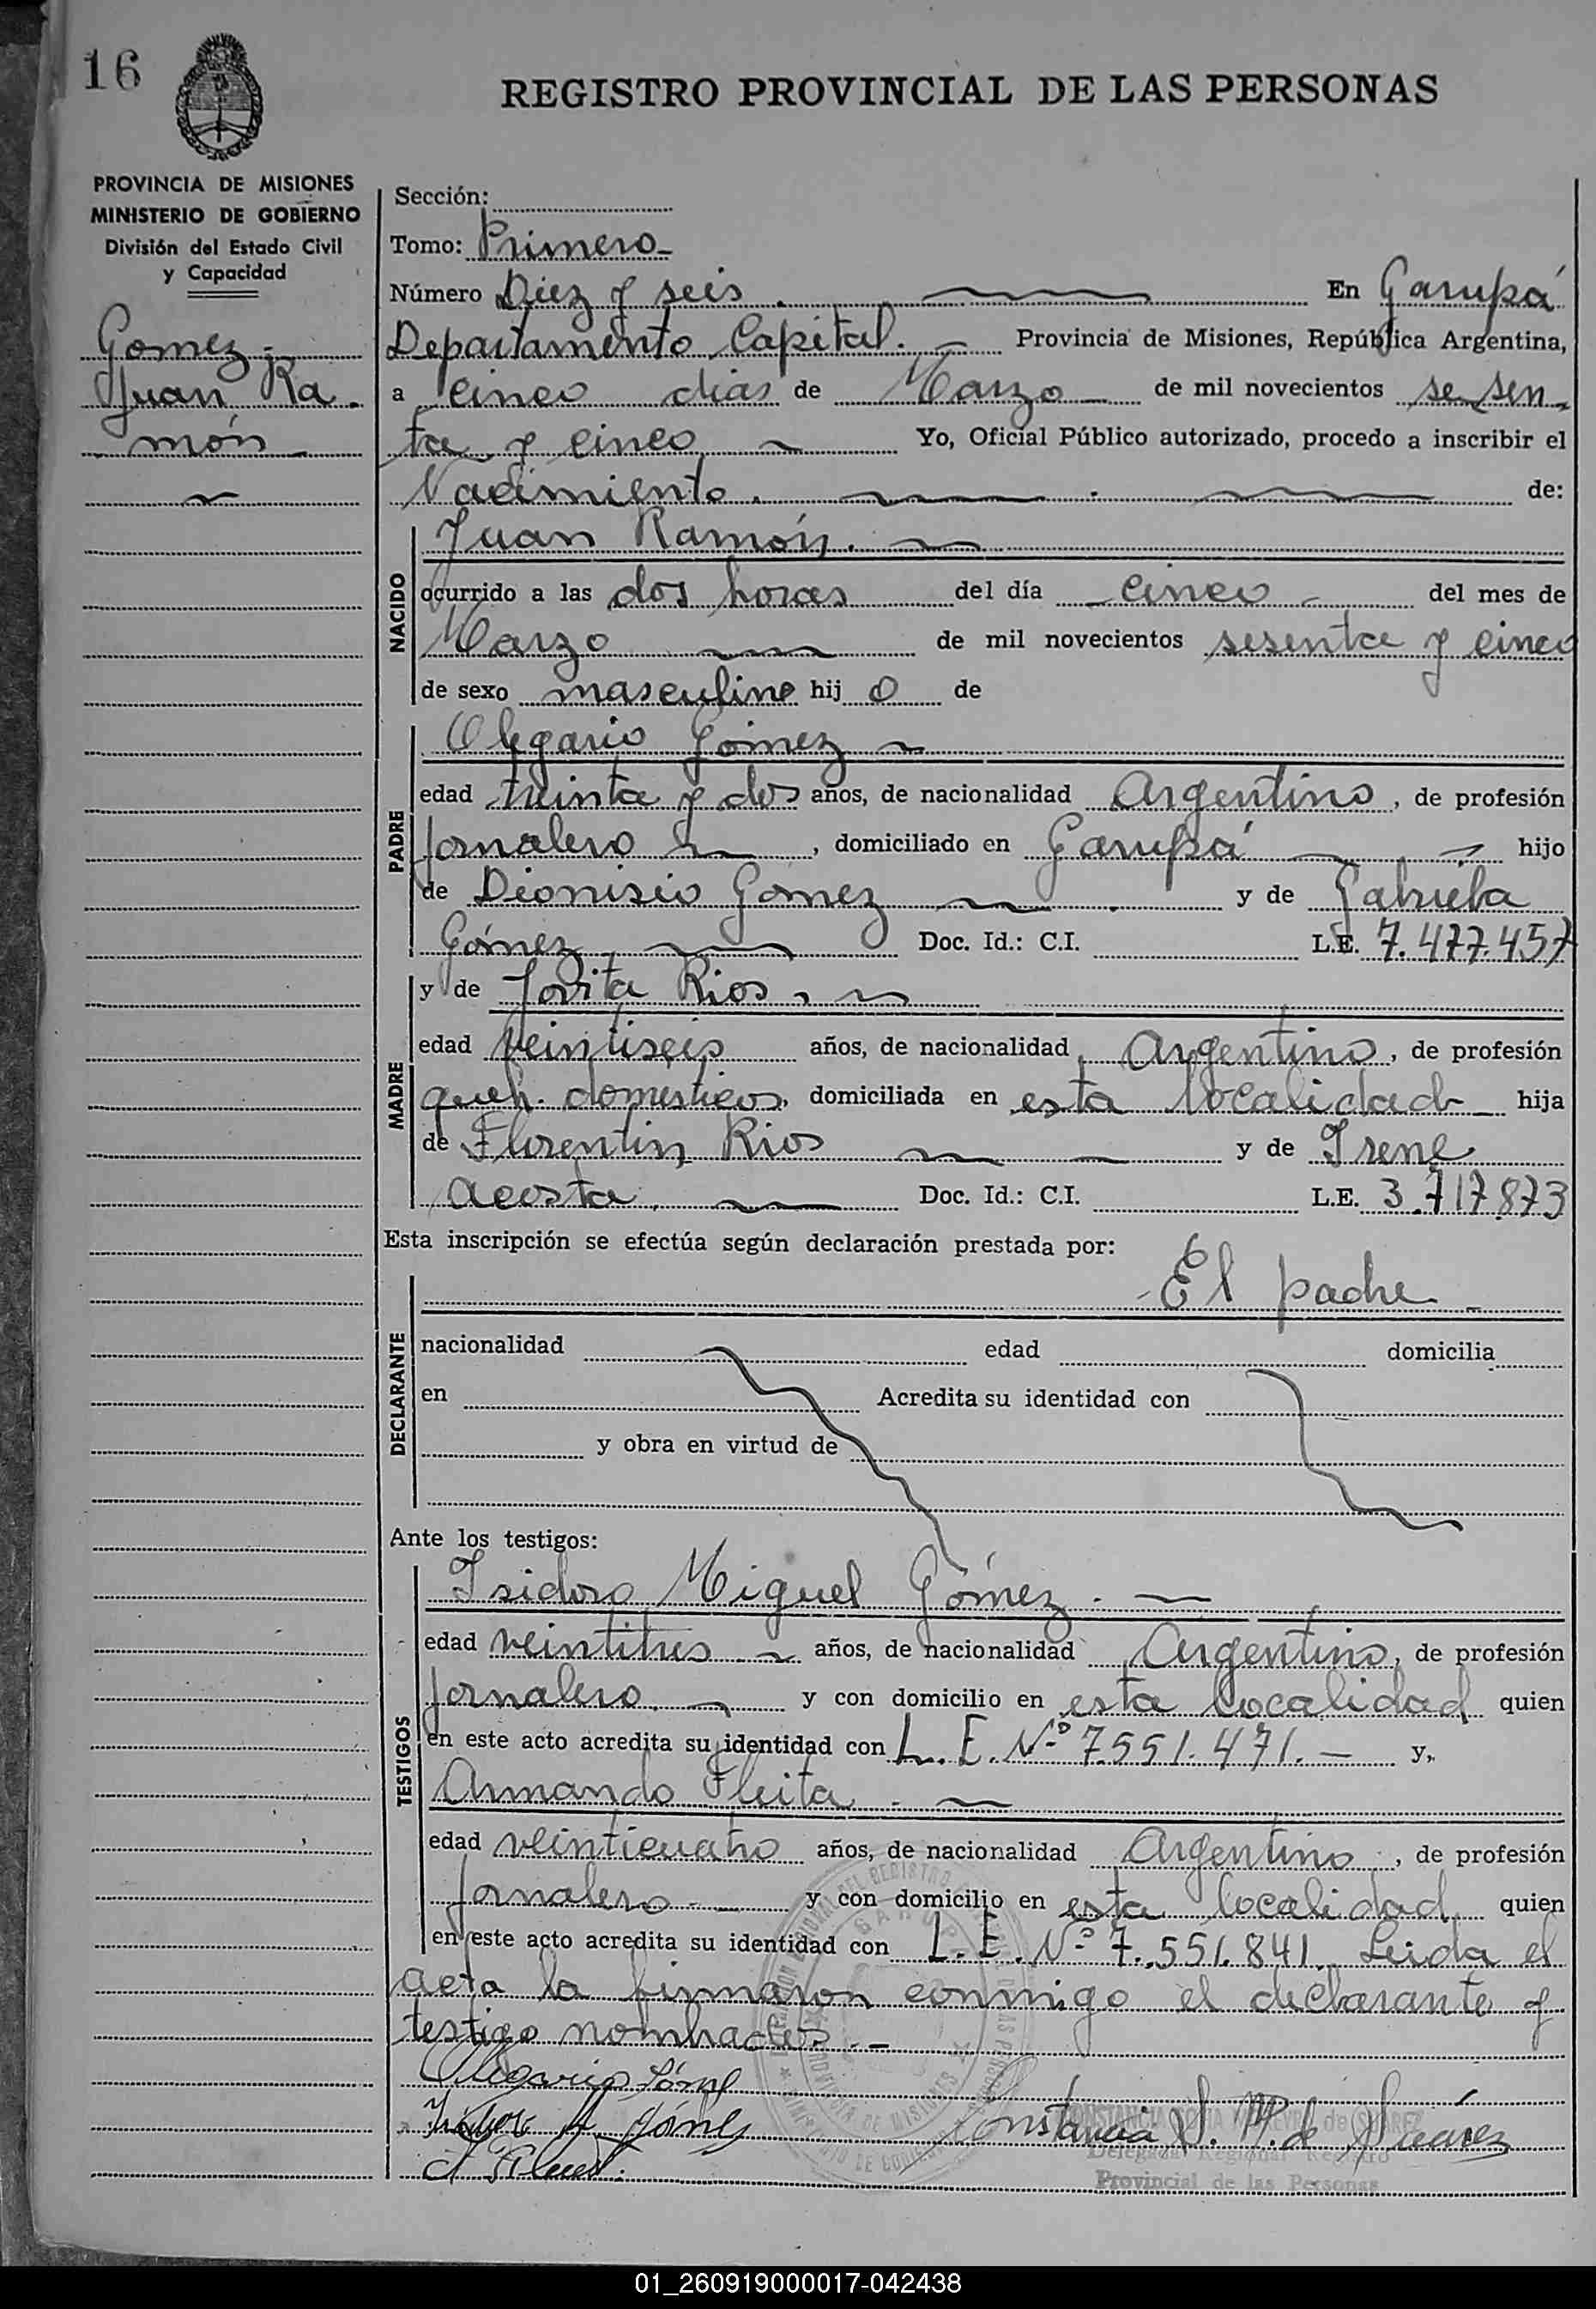 16
REGISTRO PROVINCIAL DE LAS PERSONAS
PROVINCIA DE MISIONES
MINISTERIO DE GOBIERNO
División del Estado Civil
y Capacidad
Gomez
Juan Ra
món
Sección:
Tomo: Primero
Número Diez y seis. En Garupá
Departamento Capital. Provincia de Misiones, República Argentina,
a cinco dias de Marzo de mil novecientos sesen
ta y cinco Yo, Oficial Público autorizado, procedo a inscribir el
Nacimiento. de:
NACIDO
Juan Ramón.
ocurrido a las dos horas del día cinco del mes de
Marzo de mil novecientos sesenta y cinco
de sexo masculino hij o de
PADRE
Olegario Gómez
edad treinta y dos años, de nacionalidad Argentino, de profesión
Jornalero, domiciliado en Garupá hijo
de Dionisio Gomez y de Gabriela
Gómez Doc. Id.: C.I. L.E. 7.477.457
MADRE
y de Jovita Rios
edad veintiseis años, de nacionalidad Argentino, de profesión
queh. domesticos, domiciliada en esta localidad hija
de Florentin Rios y de Irene
Acosta Doc. Id.: C.I. L.E. 3.717.873
Esta inscripción se efectúa según declaración prestada por:
DECLARANTE
El padre
nacionalidad edad domicilia
en Acredita su identidad con
y obra en virtud de
Ante los testigos:
TESTIGOS
Isidoro Miguel Gómez.
edad veintitres años, de nacionalidad Argentino, de profesión
Jornalero y con domicilio en esta localidad quien
en este acto acredita su identidad con L. E. Nº 7.551.471. y,
Armando Fleita
edad veinticuatro años, de nacionalidad Argentino, de profesión
Jornalero y con domicilio en esta localidad quien
en este acto acredita su identidad con L. E. Nº 7.551.841. Leida el
acta la firmaron conmigo el declarante y
testigo nombrados.
Olegario Gómez
Isidoro M. Gómez
Constancia S. M. de Suárez
Delegada Regional Registro
Provincial de las Personas
01_260919000017-042438